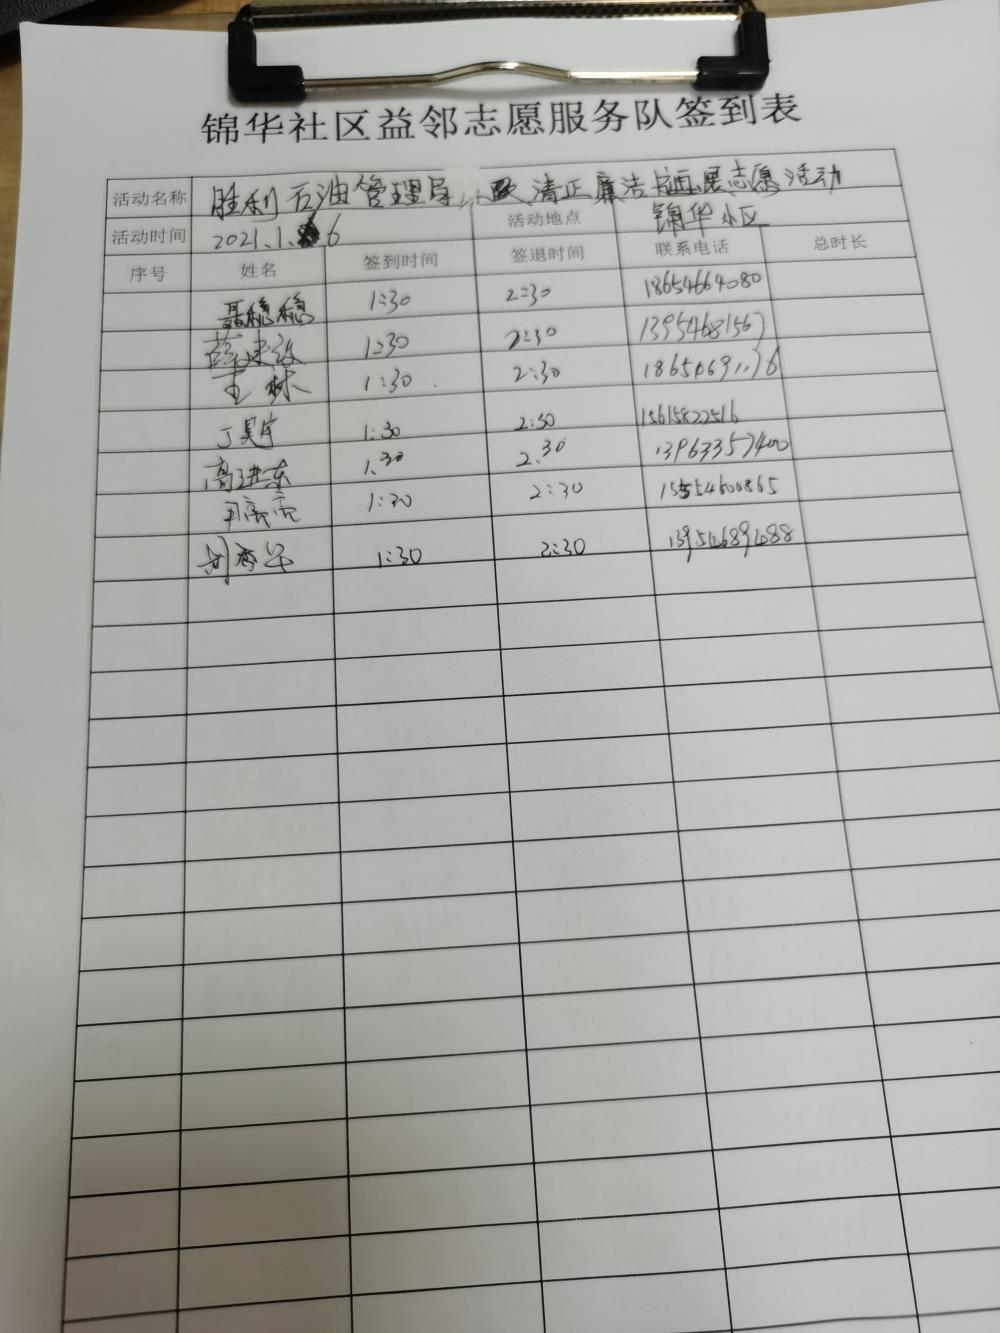 锦华社区益邻志愿服务队签到表
活动名称 胜利石油管理局 清正廉洁书画展志愿活动
活动时间 2021.1. 6 活动地点 锦华小区
序号 姓名 签到时间 签退时间 联系电话 总时长
聂稳稳 1:30 2:30 18654664080
薛 1:30 2:30 1395468156
王林 1:30 2:30
丁昊宇 1:30 2:30 15615822516
高进东 1.30 2.30 13963357400
1:30 2:30 15554600865
刘秀华 1:30 2:30